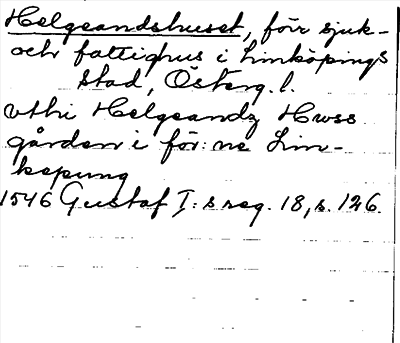 Helgeandshuset, förr sjuk-
och fattighus i Linköpings
stad, Österg. l.
vthi Helgeandz Hwss
gården i för:ne Lin-
kepung
1546 Gustaf I:s reg. 18, s. 126.